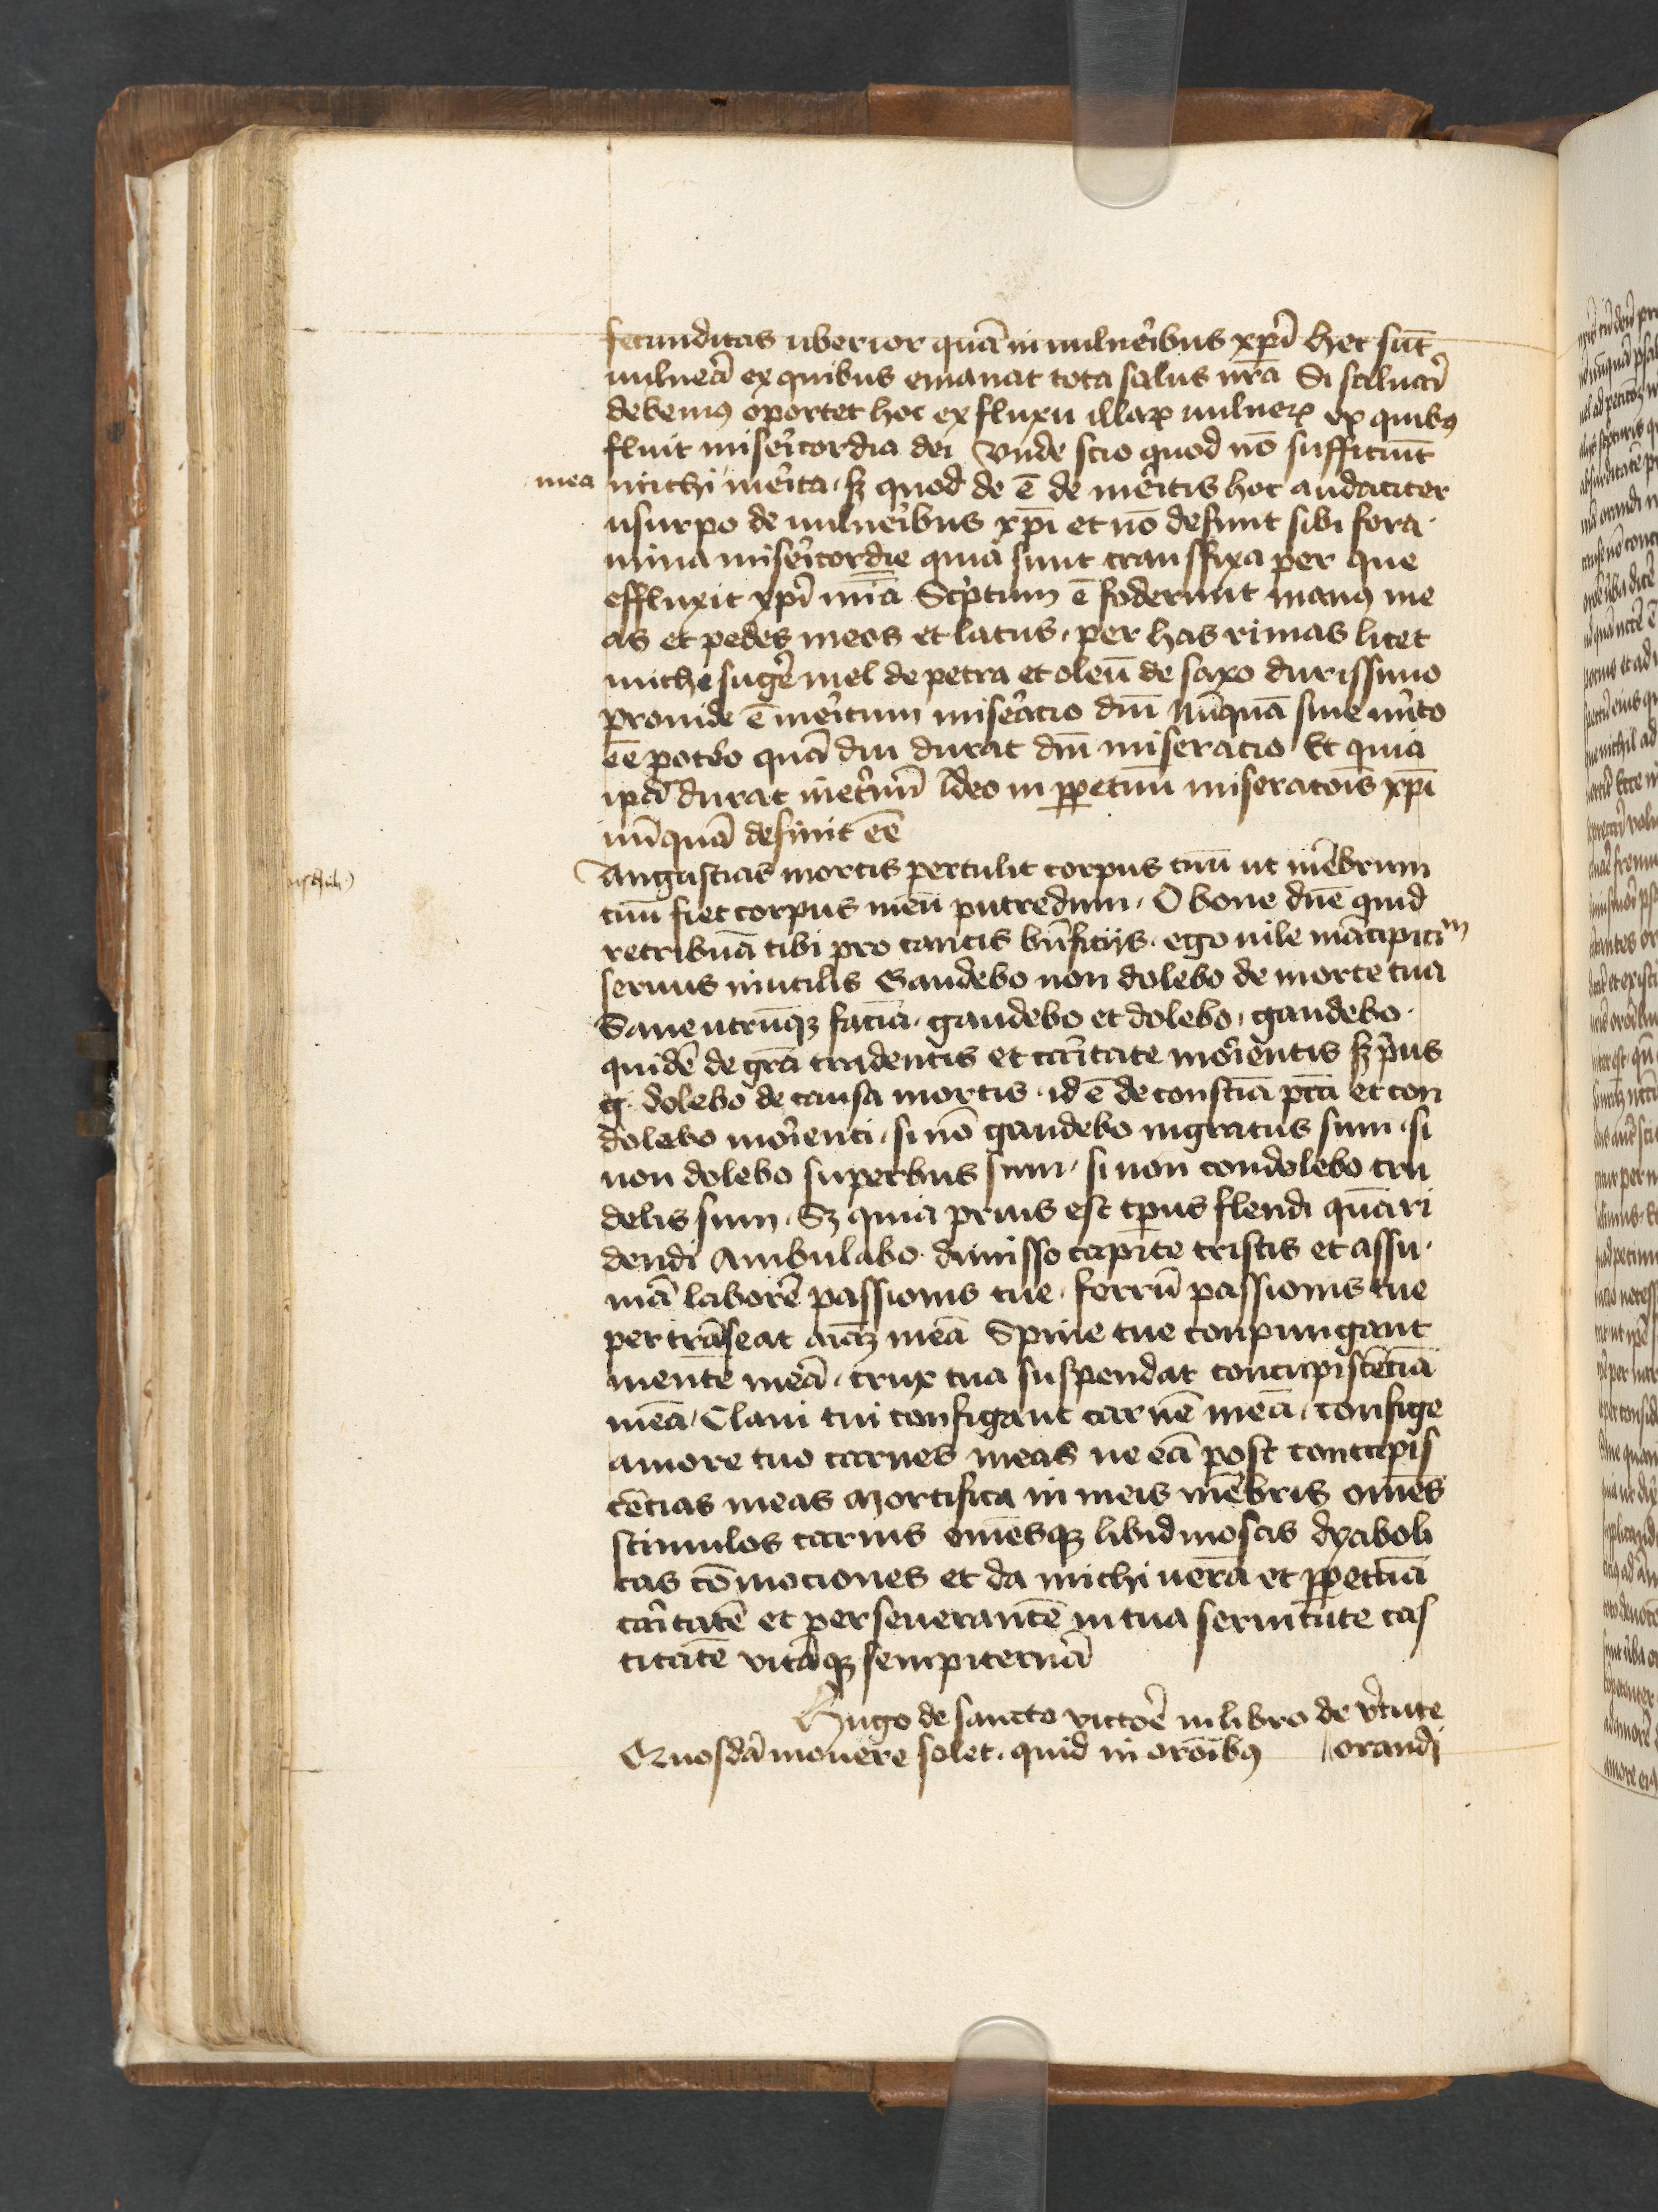 fecunditas uberior quā in uulneribus xpi hec sūt
uulnera ex quibus emanat tota salus nrā Si saluari
debemꝯ oportet hoc ex fluxu illaꝝ uulneꝝ ex quibꝯ
fluit misericordia dei Vnde scio quod nō sufficiūt
mea michi merita. sꝫ quod de ē de meritis hoc audaciter
usurpo de uulneribus xpi et nō desunt sibi fora
mina misericordie quia sunt transfixa per que
effluxit xpi mīa Scriptum ē foderunt manꝯ me
as et pedes meos et latus. per has rimas licet
michi sugere mel de petra et oleū de saxo durissimo
prouide ē meritum miseracio dnī nūquā sine mērito
eē potero quā diu durat dnī miseracio Et quia
ipā durat in eternū Ideo in ꝑpetuū miseratoīs xpi
nūquā desinit eē
Angustias mortis pertulit corpus tuū ut mēbrum
tuū fiet corpus meū putredum. O bone dnē quid
retribuā tibi pro tantis bnficijs. ego uile mācipiūm
seruus inutilis Gaudebo non dolebo de morte tua
Sane utrūqꝫ faciā. gaudebo et dolebo. gaudebo
quidē de grā tradentis et caritate morientis sꝫ prius
g. dolebo de causa mortis. id ē de consciā pctī et con
dolebo morienti. si nō gaudebo ingratus sum. si
non dolebo superbus sum. si non condolebo cru
delis sum. Sꝫ quia prius est tp̄us flendi quā ri
dendi Ambulabo dimisso capite tristis et assu
mā laborē passionis tue. ferrū passionis tue
per trāseat aīaꝫ meā Spine tue conpungant
mentē meā. crux tua suspendat concupiscēciā
meā. Claui tui configant carnē meā. confige
amore tuo carnes meas ne eā post concupis
cēcias meas mortifica in meis mēbris omēs
stimulos carnis omēsqꝫ libidinosas dyaboli
cas cōmociones et da michi uerā et ꝑpetuā
caritatē et perseuerantē in tua seruitute cas
titatē vitāqꝫ sempiternā
Hugo de sancto victorē in libro de vrtute
orandi
Quosdā mouere solet. quid in orōībꝯ